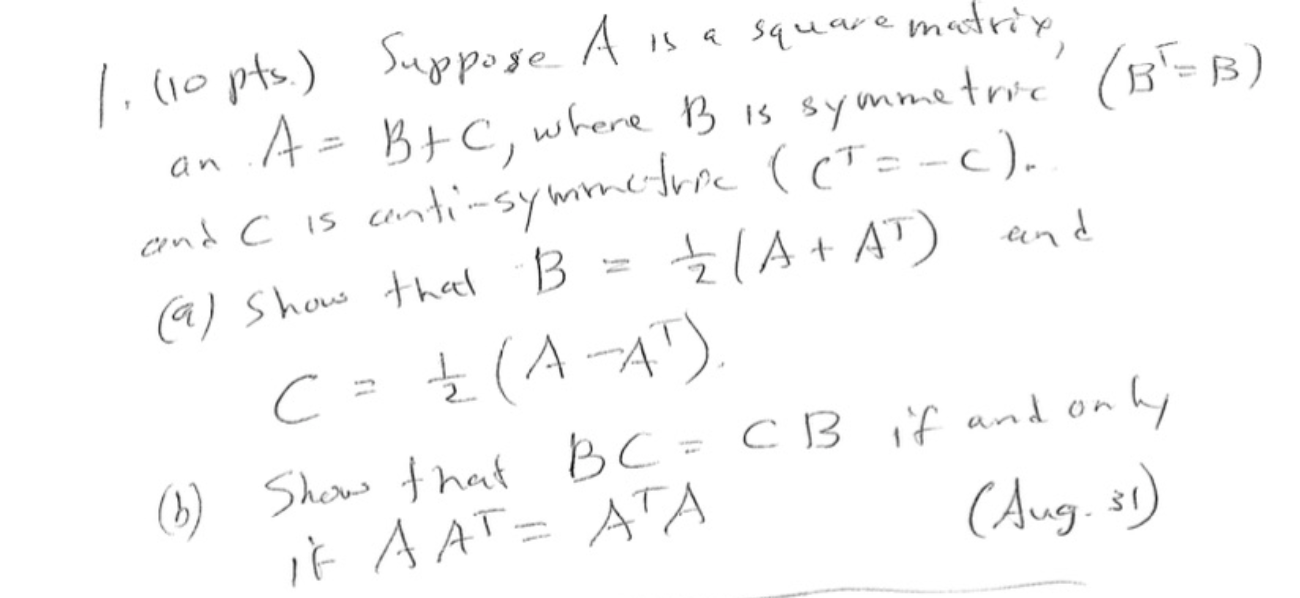 1. (10 pts.) Suppose A is a square matrix,
an A = B+C, where B is symmetric (Bᵀ=B)
and C is anti-symmetric (Cᵀ = -C).
(a) Show that B = ½(A + Aᵀ) and
C = ½(A - Aᵀ).
(b) Show that BC = CB if and only
if AAᵀ = AᵀA (Aug. 31)